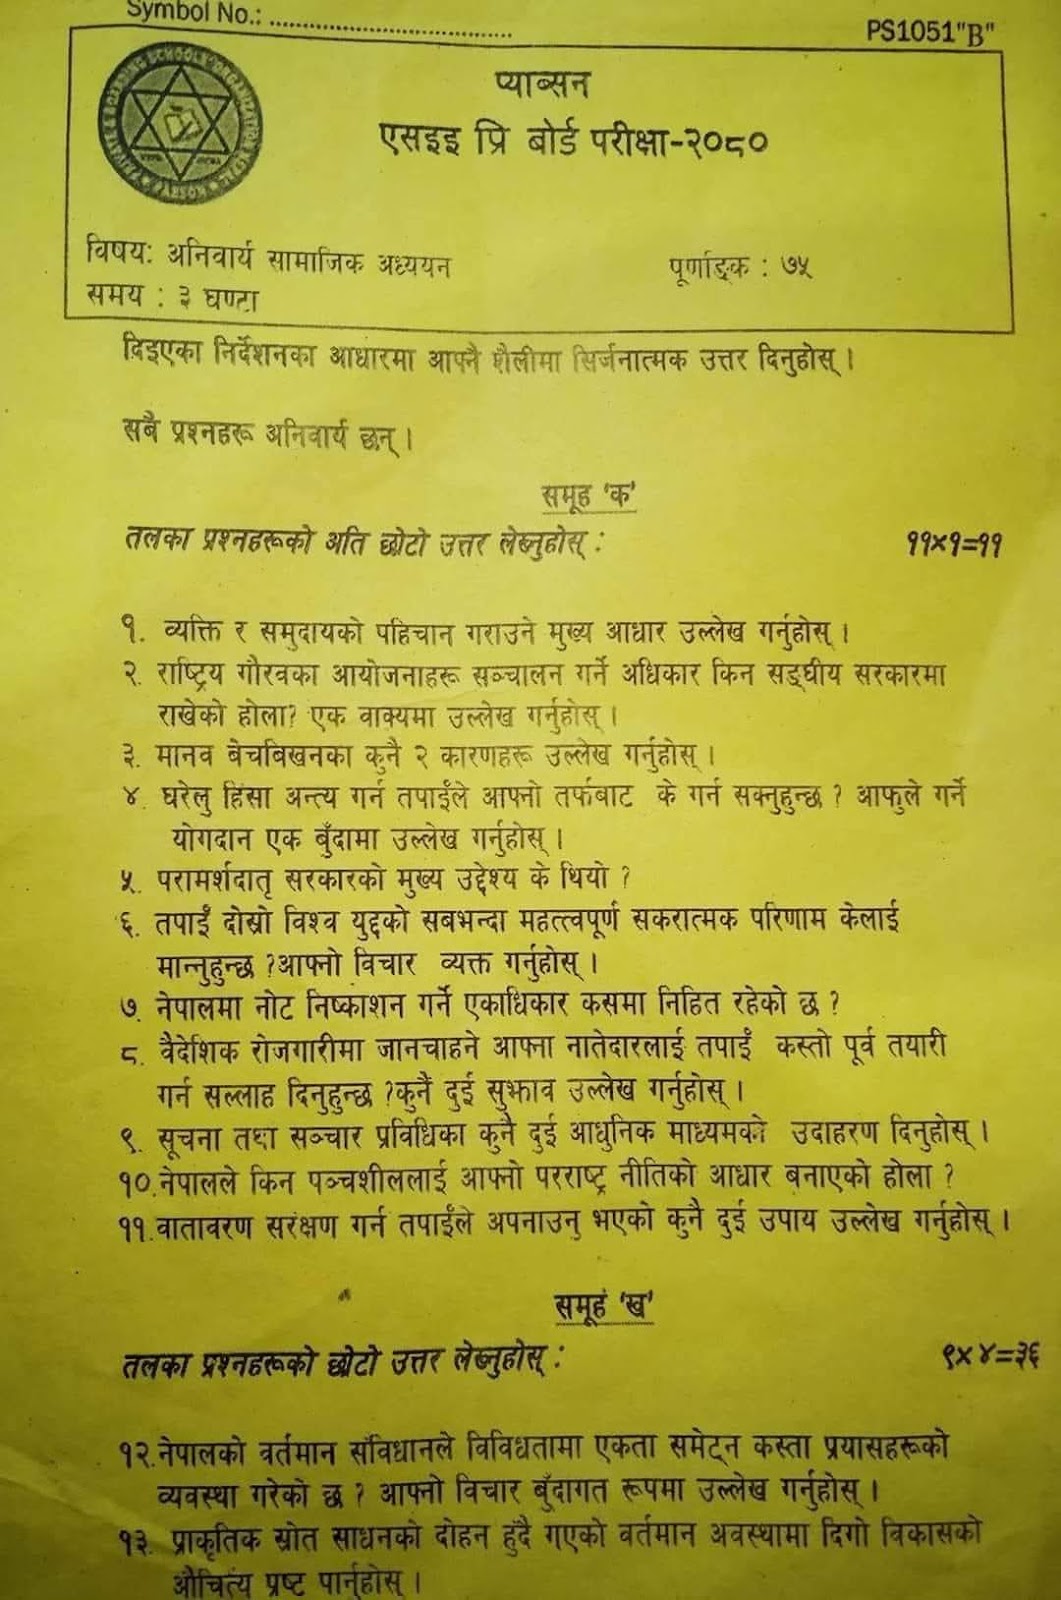 Symbol No.: ........................................
PS1051"B"
प्याब्सन
एसइइ प्रि बोर्ड परीक्षा-२०८०
विषय: अनिवार्य सामाजिक अध्ययन
पूर्णाङ्क : ७५
समय : ३ घण्टा
दिइएका निर्देशनका आधारमा आफ्नै शैलीमा सिर्जनात्मक उत्तर दिनुहोस् ।
सबै प्रश्नहरू अनिवार्य छन् ।
समूह 'क'
तलका प्रश्नहरूको अति छोटो उत्तर लेख्नुहोस् :
११×१=११
१. व्यक्ति र समुदायको पहिचान गराउने मुख्य आधार उल्लेख गर्नुहोस् ।
२. राष्ट्रिय गौरवका आयोजनाहरू सञ्चालन गर्ने अधिकार किन सङ्घीय सरकारमा
राखेको होला? एक वाक्यमा उल्लेख गर्नुहोस् ।
३. मानव बेचबिखनका कुनै २ कारणहरू उल्लेख गर्नुहोस् ।
४. घरेलु हिंसा अन्त्य गर्न तपाईंले आफ्नो तर्फबाट के गर्न सक्नुहुन्छ ? आफुले गर्ने
योगदान एक बुँदामा उल्लेख गर्नुहोस् ।
५. परामर्शदातृ सरकारको मुख्य उद्देश्य के थियो ?
६. तपाईं दोस्रो विश्व युद्दको सबभन्दा महत्त्वपूर्ण सकरात्मक परिणाम केलाई
मान्नुहुन्छ ?आफ्नो विचार व्यक्त गर्नुहोस् ।
७. नेपालमा नोट निष्काशन गर्ने एकाधिकार कसमा निहित रहेको छ ?
८. वैदेशिक रोजगारीमा जानचाहने आफ्ना नातेदारलाई तपाईं कस्तो पूर्व तयारी
गर्न सल्लाह दिनुहुन्छ ?कुनै दुई सुझाव उल्लेख गर्नुहोस् ।
९. सूचना तथा सञ्चार प्रविधिका कुनै दुई आधुनिक माध्यमको उदाहरण दिनुहोस् ।
१०.नेपालले किन पञ्चशीललाई आफ्नो परराष्ट्र नीतिको आधार बनाएको होला ?
११.वातावरण सरंक्षण गर्न तपाईंले अपनाउनु भएको कुनै दुई उपाय उल्लेख गर्नुहोस् ।
समूहं 'ख'
तलका प्रश्नहरूको छोटो उत्तर लेख्नुहोस् :
९×४=३६
१२.नेपालको वर्तमान संविधानले विविधतामा एकता समेट्न कस्ता प्रयासहरूको
व्यवस्था गरेको छ ? आफ्नो विचार बुँदागत रूपमा उल्लेख गर्नुहोस् ।
१३. प्राकृतिक स्रोत साधनको दोहन हुदै गएको वर्तमान अवस्थामा दिगो विकासको
औचित्य प्रष्ट पार्नुहोस् ।